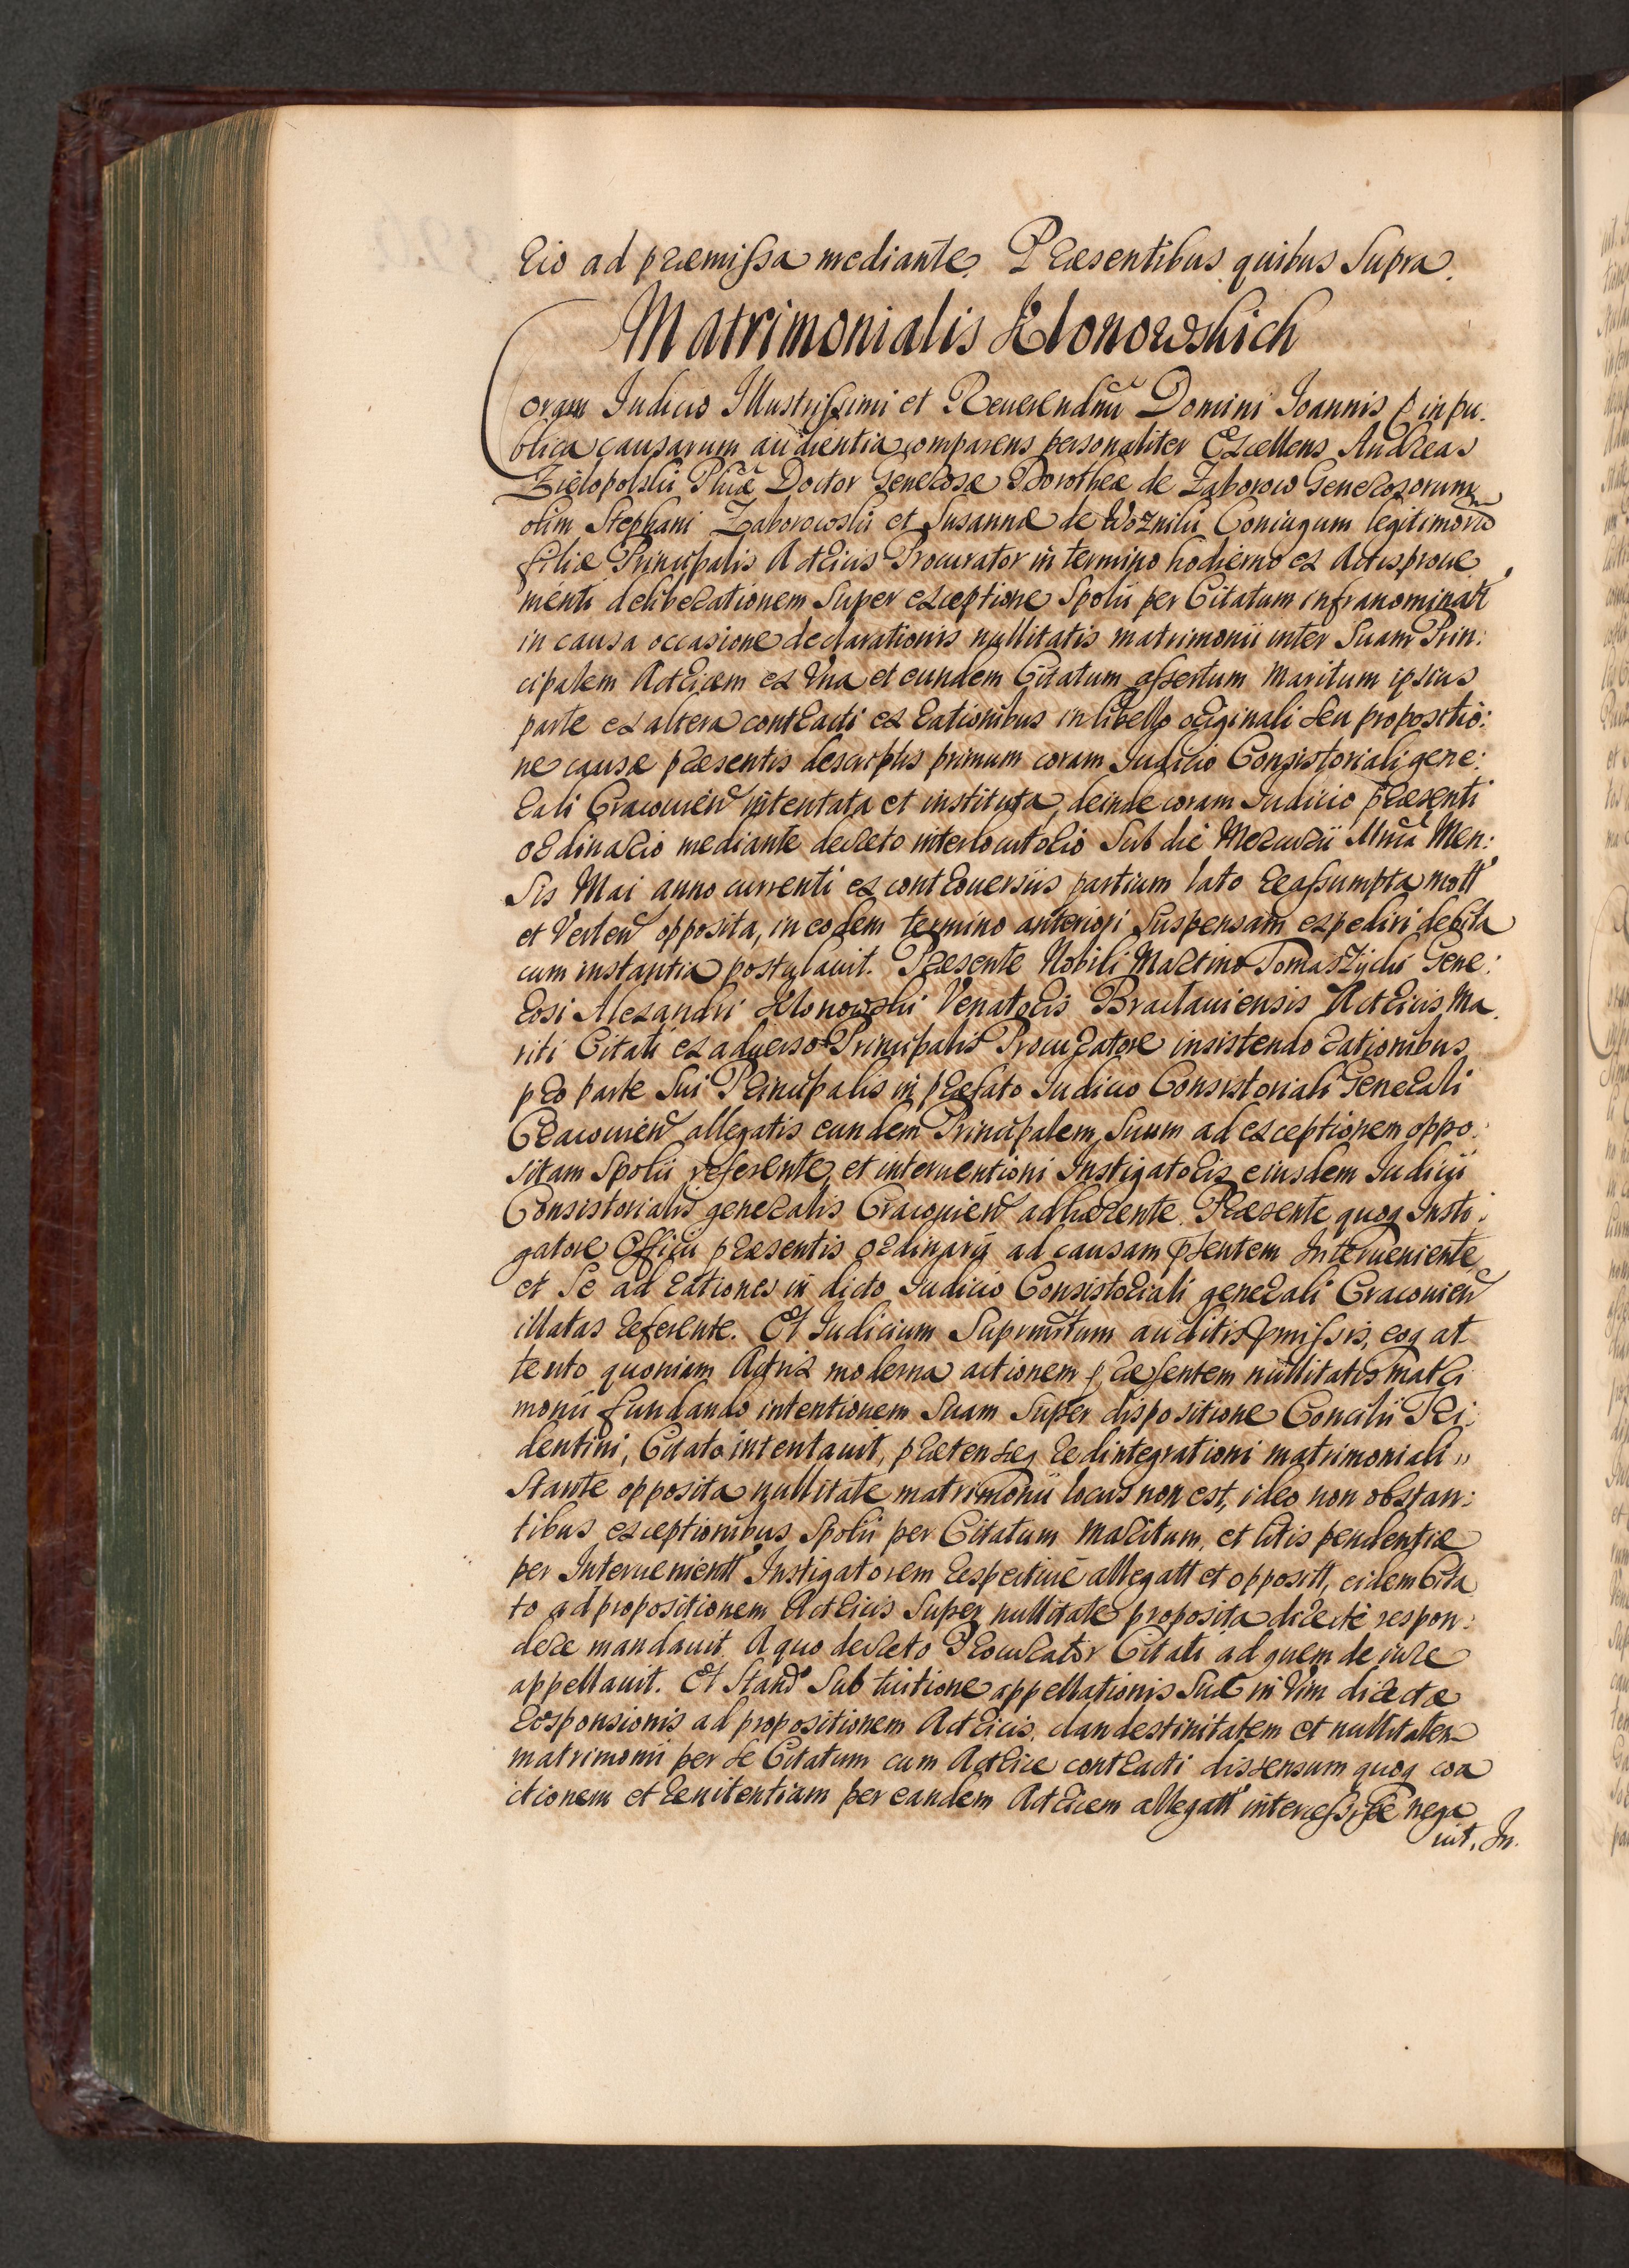 rio ad præmissa mediante. Præsentibus quibus Supra.
Matrimonialis Klonowskich
Coram Iudicio Illustrissimi et Reuerendmi Domini Ioannis p in pu:
blica causarum audientia comparens personaliter Excellens Andreas
Zielopolski Phiæ Doctor Generosæ Dorotheæ de Zaborow Generosorum
olim Stephani Zaborowski et Susannæ de Wozniki Coniugum legitimoru
filiæ Principalis Actricis Procurator in termino hodierno ex Actis proue
menti deliberationem Super exceptione Spolii per Citatum infranominatt
in causa occasione declarationis nullitatis matrimonii inter Suam Prin:
cipalem Actricem ex Vna et eundem Citatum assertum Maritum ipsius
parte ex altera contracti ex rationibus in libello originali seu propositio:
ne causæ præsentis descriptis primum coram Iudicio Consistoriali gene:
rali Cracouien intentata et instituta, deinde coram Iudicio præsenti
ordinario mediante decreto interlocutorio Sub die Mercurii Vnda Men:
Sis Mai anno currenti ex controuersiis partium lato reassumpta mott
et Verten opposita, in eodem termino anteriori Suspensam expediri debita
cum instantia postulauit. Præsente Nobili Martino Tomaszycki Gene:
rosi Alexandri Klonowski Venatoris Braclauiensis Actricis Ma
riti Citati ex aduerso Principalis Procuratore insistendo rationibus
pro parte Sui Principalis in præfato Iudicio Consistoriali Generali
Cracouien allegatis eundem Principalem Suum ad exceptionem oppo:
sitam Spolii referente, et interuentioni Instigatoris eiusdem Iudicii
Consistorialis generalis Cracouien adhærente. Præsente quoq Insti:
gatore Officii præsentis ordinarii ad causam pñtem Interueniente
et Se ad rationes in dicto Iudicio Consistoriali generali Cracouien
illatas referente. Et Iudicium Suprmtum auditis pmissis, eoq at
tento quoniam Actrix moderna actionem præsentem nullitatis matri
monii fundando intentionem Suam Super dispositione Concilii Tri:
dentini, Citato intentauit, prætensæq redintegrationi matrimoniali
Stante opposita nullitate matrimonii locus non est, ideo non obstan:
tibus exceptionibus Spolii per Citatum Maritum, et litis pendentiæ
per Interuenientt Instigatorem respectiue allegatt et opposltt, eidem Cita
to ad propositionem Actricis Super nullitate proposita directe respon:
dere mandauit. A quo decreto Procurator Citati ad quem de iure
appellauit. Et Stand Sub tuitione appellationis Suæ in Vim directæ
responsionis ad propositionem Actricis, clandestinitatem et nullitatem
matrimonii per se Citatum cum Actrice contracti dissensum quoq coa
ctionem et renitentiam per eandem Actricem allegatt intercessisse nega
uit. In.